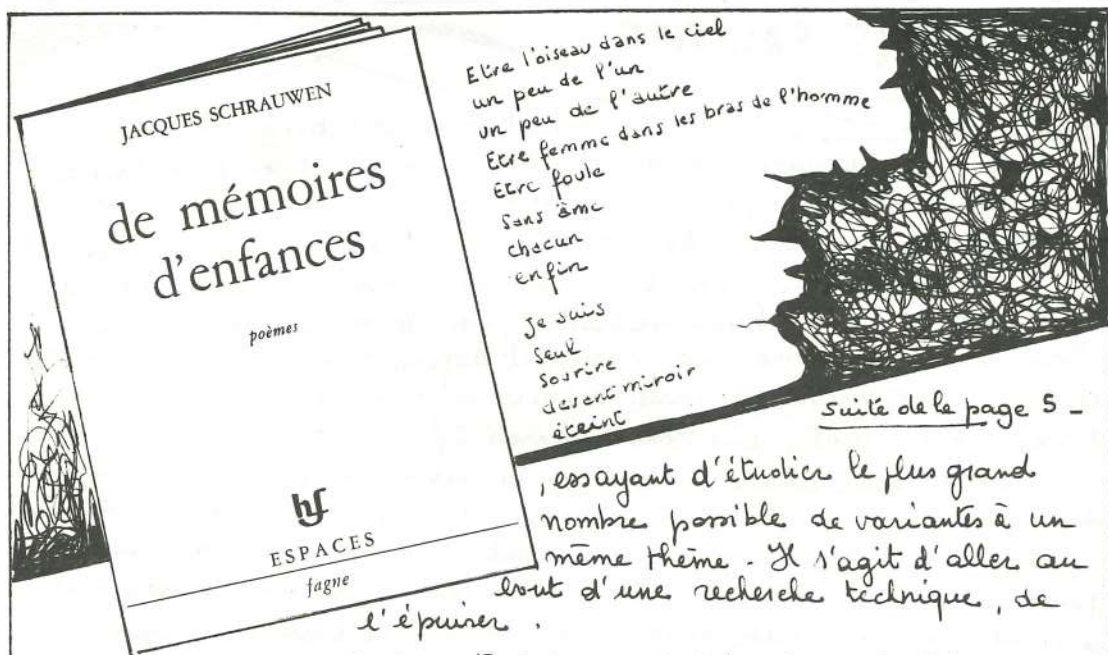 JACQUES SCHRAUWEN
de mémoires
d'enfances
poèmes
hf
ESPACES
fagne
Etre l'oiseau dans le ciel
un peu de l'un
un peu de l'autre
Etre femme dans les bras de l'homme
Etre foule
Sans âme
chacun
enfin
Je suis
seul
sourire
devant miroir
éteint
suite de la page 5 -
, essayant d'étudier le plus grand
nombre possible de variantes à un
même thème - Il s'agit d'aller au
bout d'une recherche technique, de
l'épuiser.